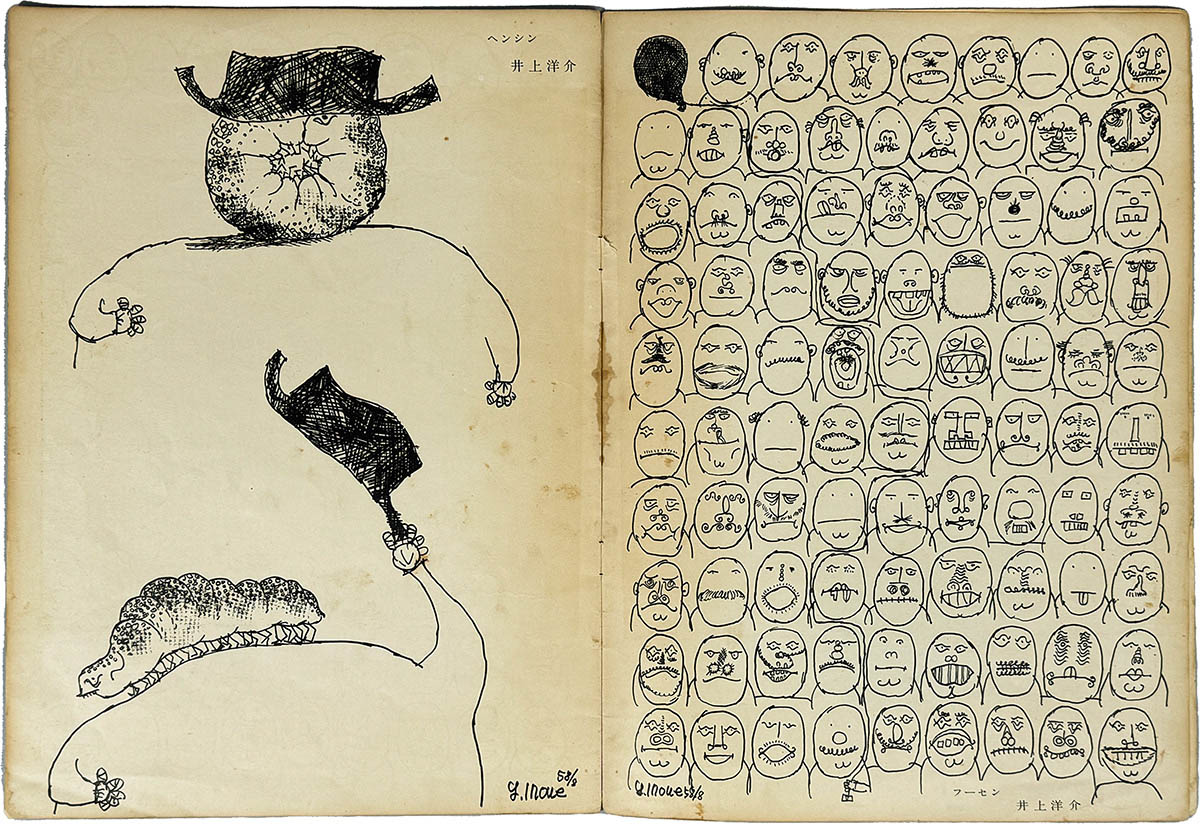 ヘンシン
井上洋介
y. Inoue 58/8
y. Inoue 58/8
フーセン
井上洋介